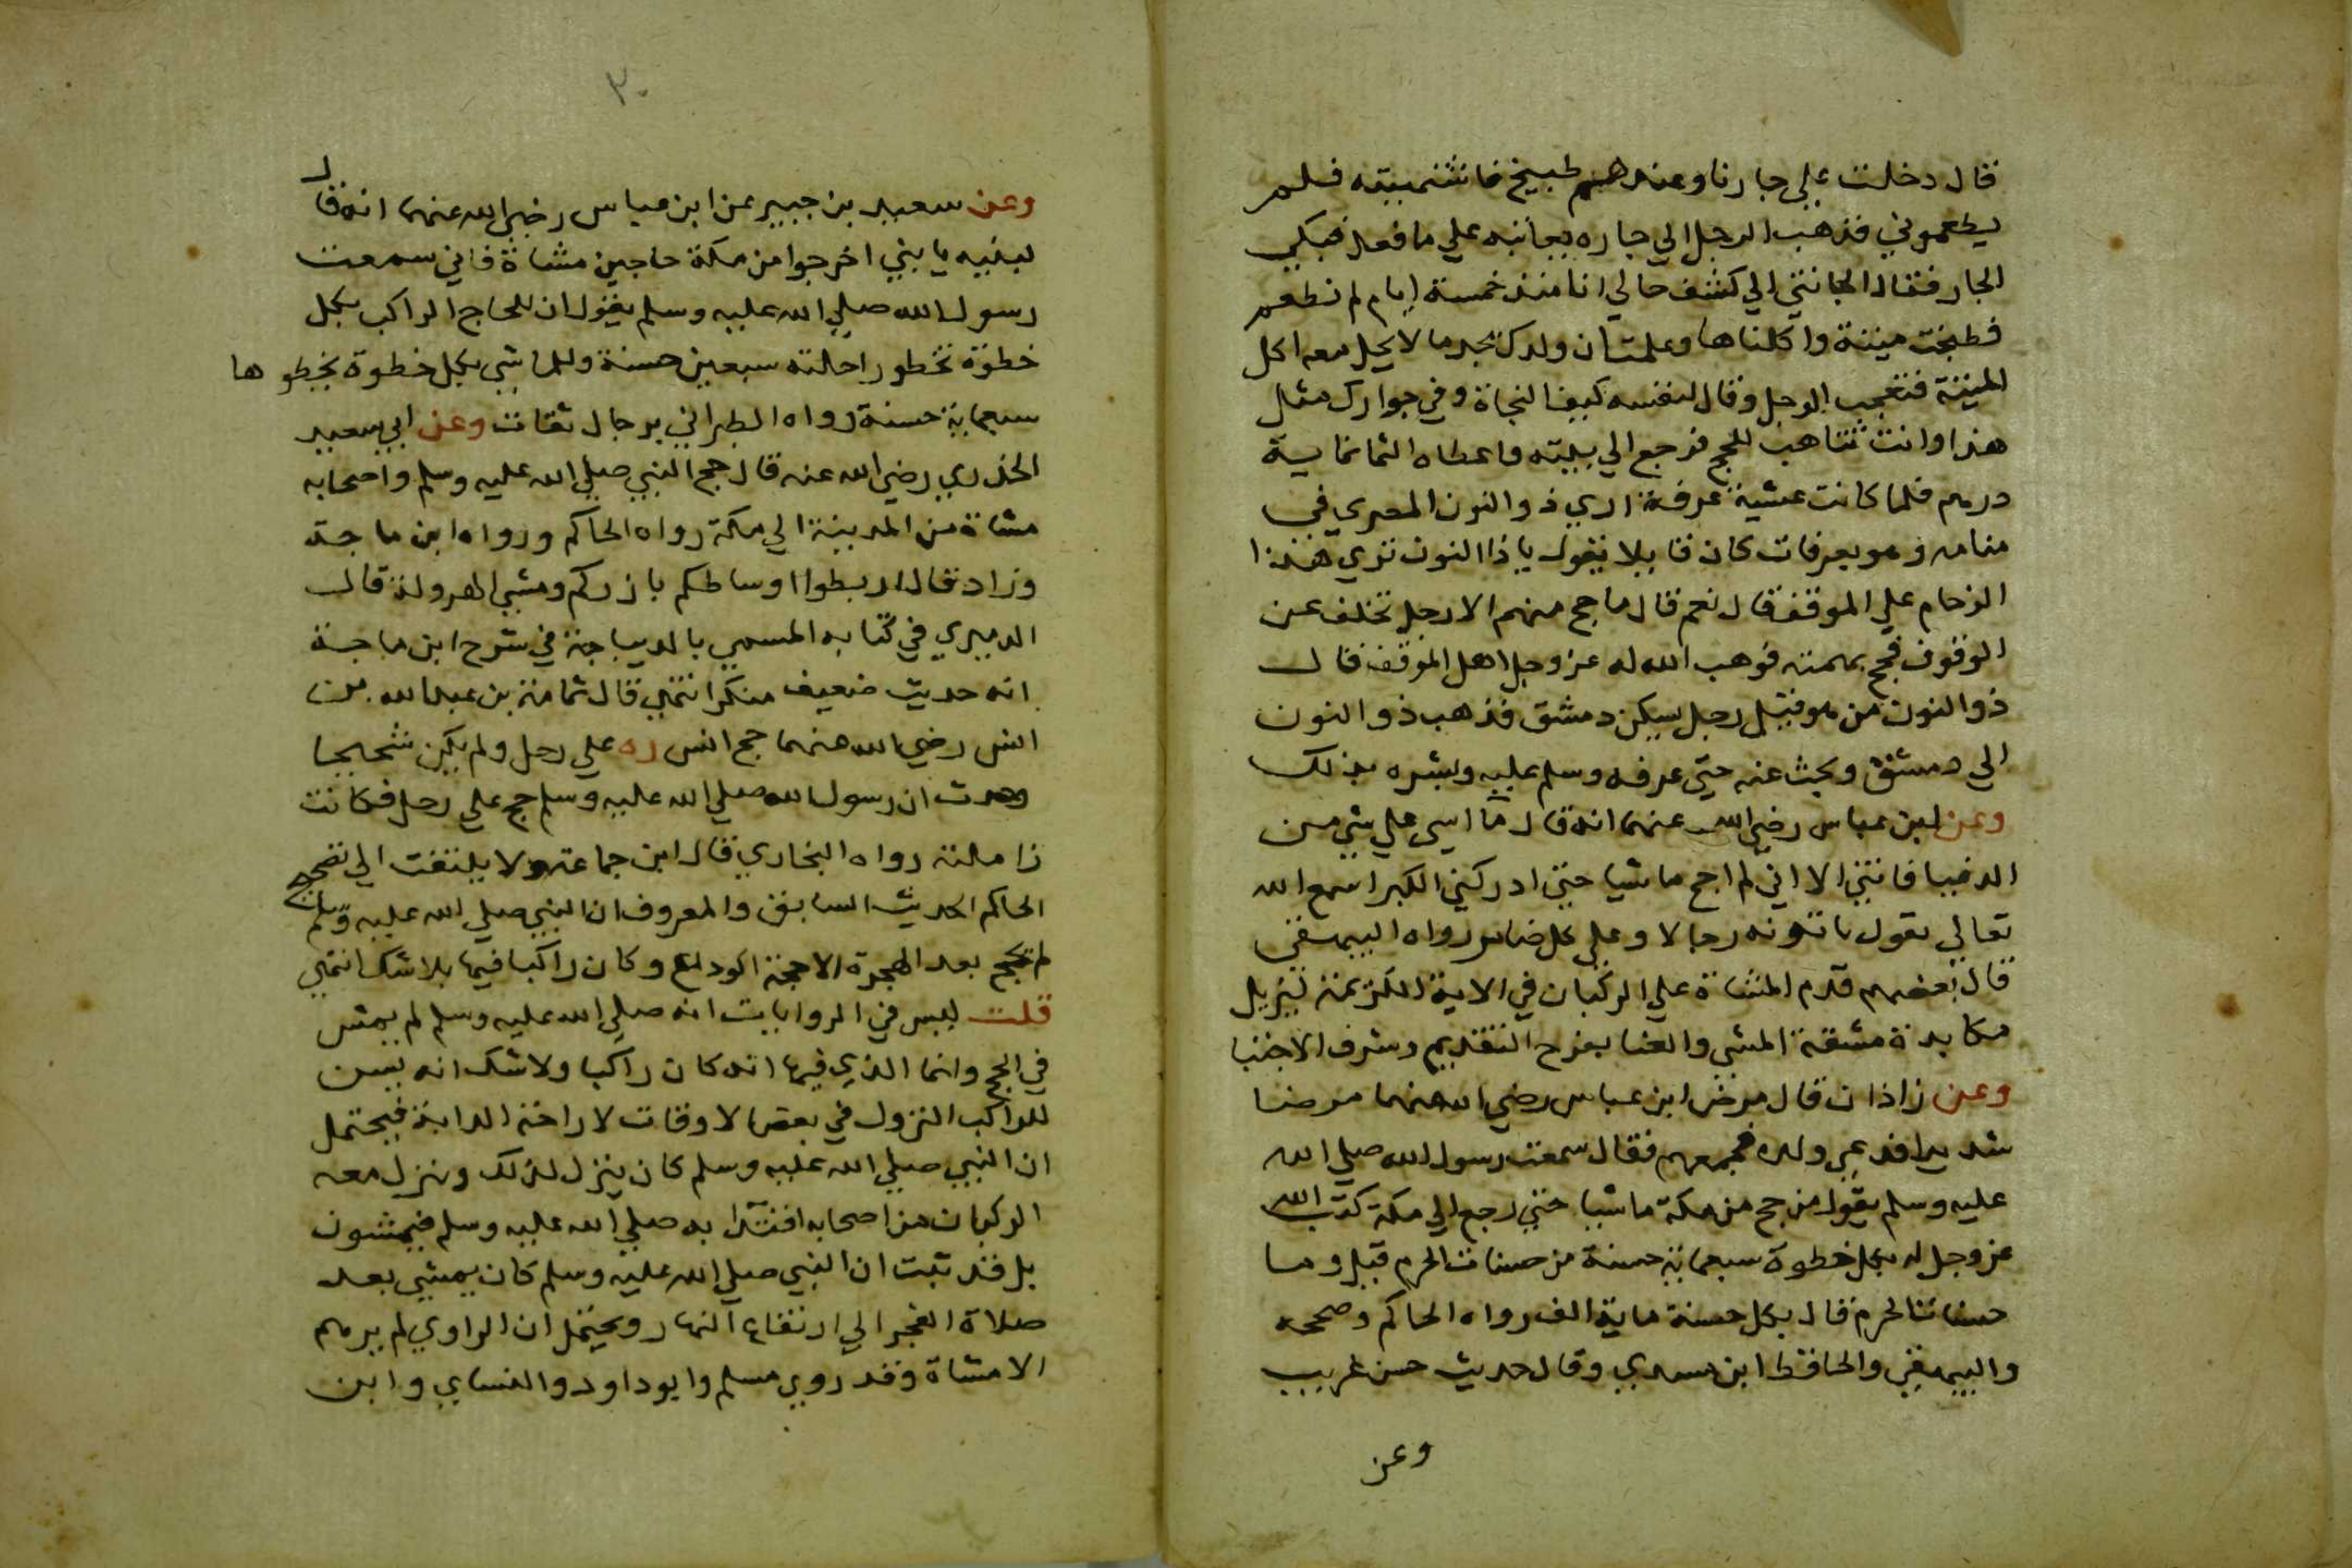 قال دخلت علي جارنا وعندهم طبيخ فاشتميته فلم
يطعموني فذهب الرجل الي جاره يعاتبه علي ما فعل فبكي
الجار فقال الجاتني الي كشف حالي انا منذ خمسة ايام لم نطعم
فطبخت ميتة واكلناها وعلمت ان ولدك يجد ما لا يحل معه اكل
الميتة فتعجب الرجل وقال لنفسه كيف النجاة وفي جوارك مثل
هذا وانت تتاهب للحج فرجع الي بيته واعطاه الثمانماية
درهم فلما كانت عشية عرفة اري ذو النون المصري في
منامه وهو بعرفات كان قايلا يقول يا ذا النون تري هذا
الزحام علي الموقف قال نعم قال ما حج منهم الا رجل تخلف عن
الوقوف فحج بهمته فوهب الله له عز وجل اهل الموقف قال
ذو النون من هو فقيل رجل يسكن دمشق فذهب ذو النون
الي دمشق وبحث عنه حتي عرفه وسلم عليه وبشره بذلك
وعن ابن عباس رضي الله عنهما انه قال ما اسي علي شي من
الدنيا فاتني الا اني لم احج ماشيا حتي ادركني الكبر اسمع الله
تعالي يقول ياتونه رجالا وعلي كل ضامر رواه البيهقي
قال بعضهم قدم المشاة علي الركبان في الاية الكريمة لتزيل
مكابدة مشقة المشي والعنا بفرح التقديم وشرف الاجتبا
وعن زاذان قال مرض ابن عباس رضي الله عنهما مرضا
شديدا فدعي ولده فجمعهم فقال سمعت رسول الله صلي الله
عليه وسلم يقول من حج من مكة ماشيا حتي رجع الي مكة كتب الله
عز وجل له بكل خطوة سبعماية حسنة من حسنات الحرم قيل وما
حسنات الحرم قال بكل حسنة ماية الف رواه الحاكم وصححه
والبيهقي والحافظ ابن مسدي وقال حديث حسن غريب
وعن
٣٠
وعن سعيد بن جبير عن ابن عباس رضي الله عنهما انه قال
لبنيه يا بني اخرجوا من مكة حاجين مشاة فاني سمعت
رسول الله صلي الله عليه وسلم يقول ان للحاج الراكب بكل
خطوة تخطو راحلته سبعين حسنة وللماشي بكل خطوة يخطوها
سبعماية حسنة رواه الطبراني برجال ثقات وعن ابي سعيد
الخدري رضي الله عنه قال حج النبي صلي الله عليه وسلم واصحابه
مشاة من المدينة الي مكة رواه الحاكم ورواه ابن ماجة
وزاد فقال اربطوا اوساطكم بازركم ومشي الهرولة قال
الدميري في كتابه المسمي بالديباجة في شرح ابن ماجة
انه حديث ضعيف منكر انتهي قال ثمامة بن عبدالله بن
انس رضي الله عنهما حج انس ره علي رحل ولم يكن شحيحا
وحدث ان رسول الله صلي الله عليه وسلم حج علي رحل فكانت
زاملته رواه البخاري قال ابن جماعة ولا يلتفت الي تصحيح
الحاكم الحديث السابق والمعروف ان النبي صلي الله عليه وسلم
لم يحج بعد الهجرة الا حجة الوداع وكان راكبا فيها بلا شك انتهي
قلت ليس في الروايات انه صلي الله عليه وسلم لم يمش
في الحج وانما الذي فيها انه كان راكبا ولا شك انه يسن
للراكب النزول في بعض الاوقات لاراحة الدابة فيحتمل
ان النبي صلي الله عليه وسلم كان ينزل لذلك وينزل معه
الركبان من اصحابه اقتدا به صلي الله عليه وسلم فيمشون
بل قد ثبت ان النبي صلي الله عليه وسلم كان يمشي بعد
صلاة الفجر الي ارتفاع النهار ويحتمل ان الراوي لم يرهم
الا مشاة وقد روي مسلم وابو داود والنساي وابن